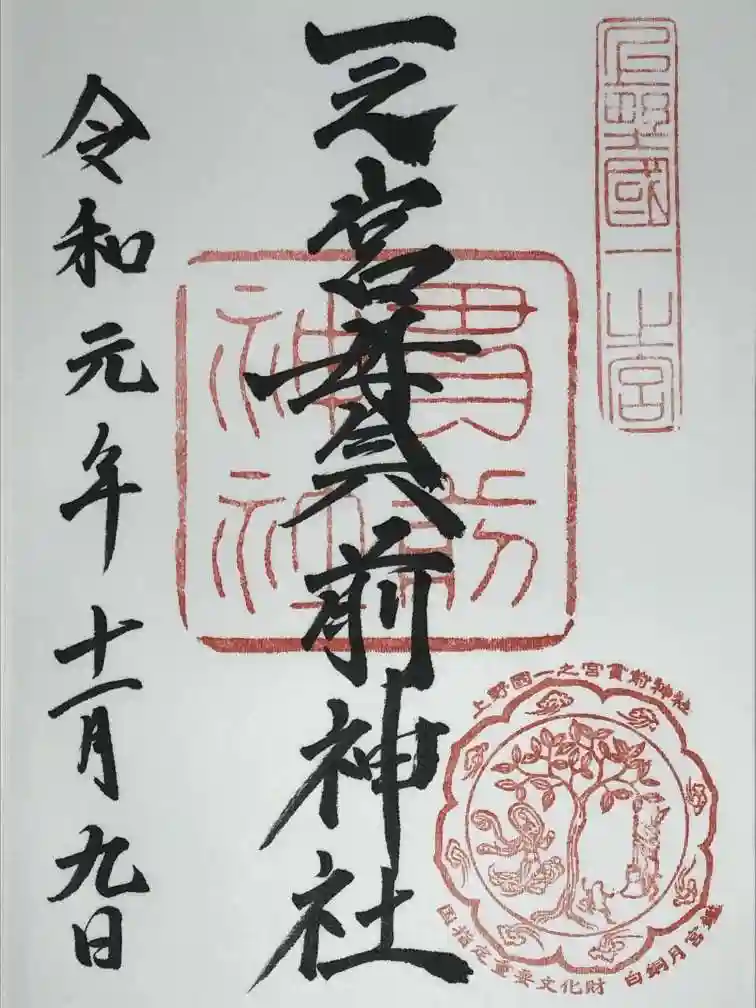 上野國一之宮
一之宮貫前神社
貫前神社
上野國一之宮貫前神社
国指定重要文化財 白銅月宮鑑
令和元年十一月九日